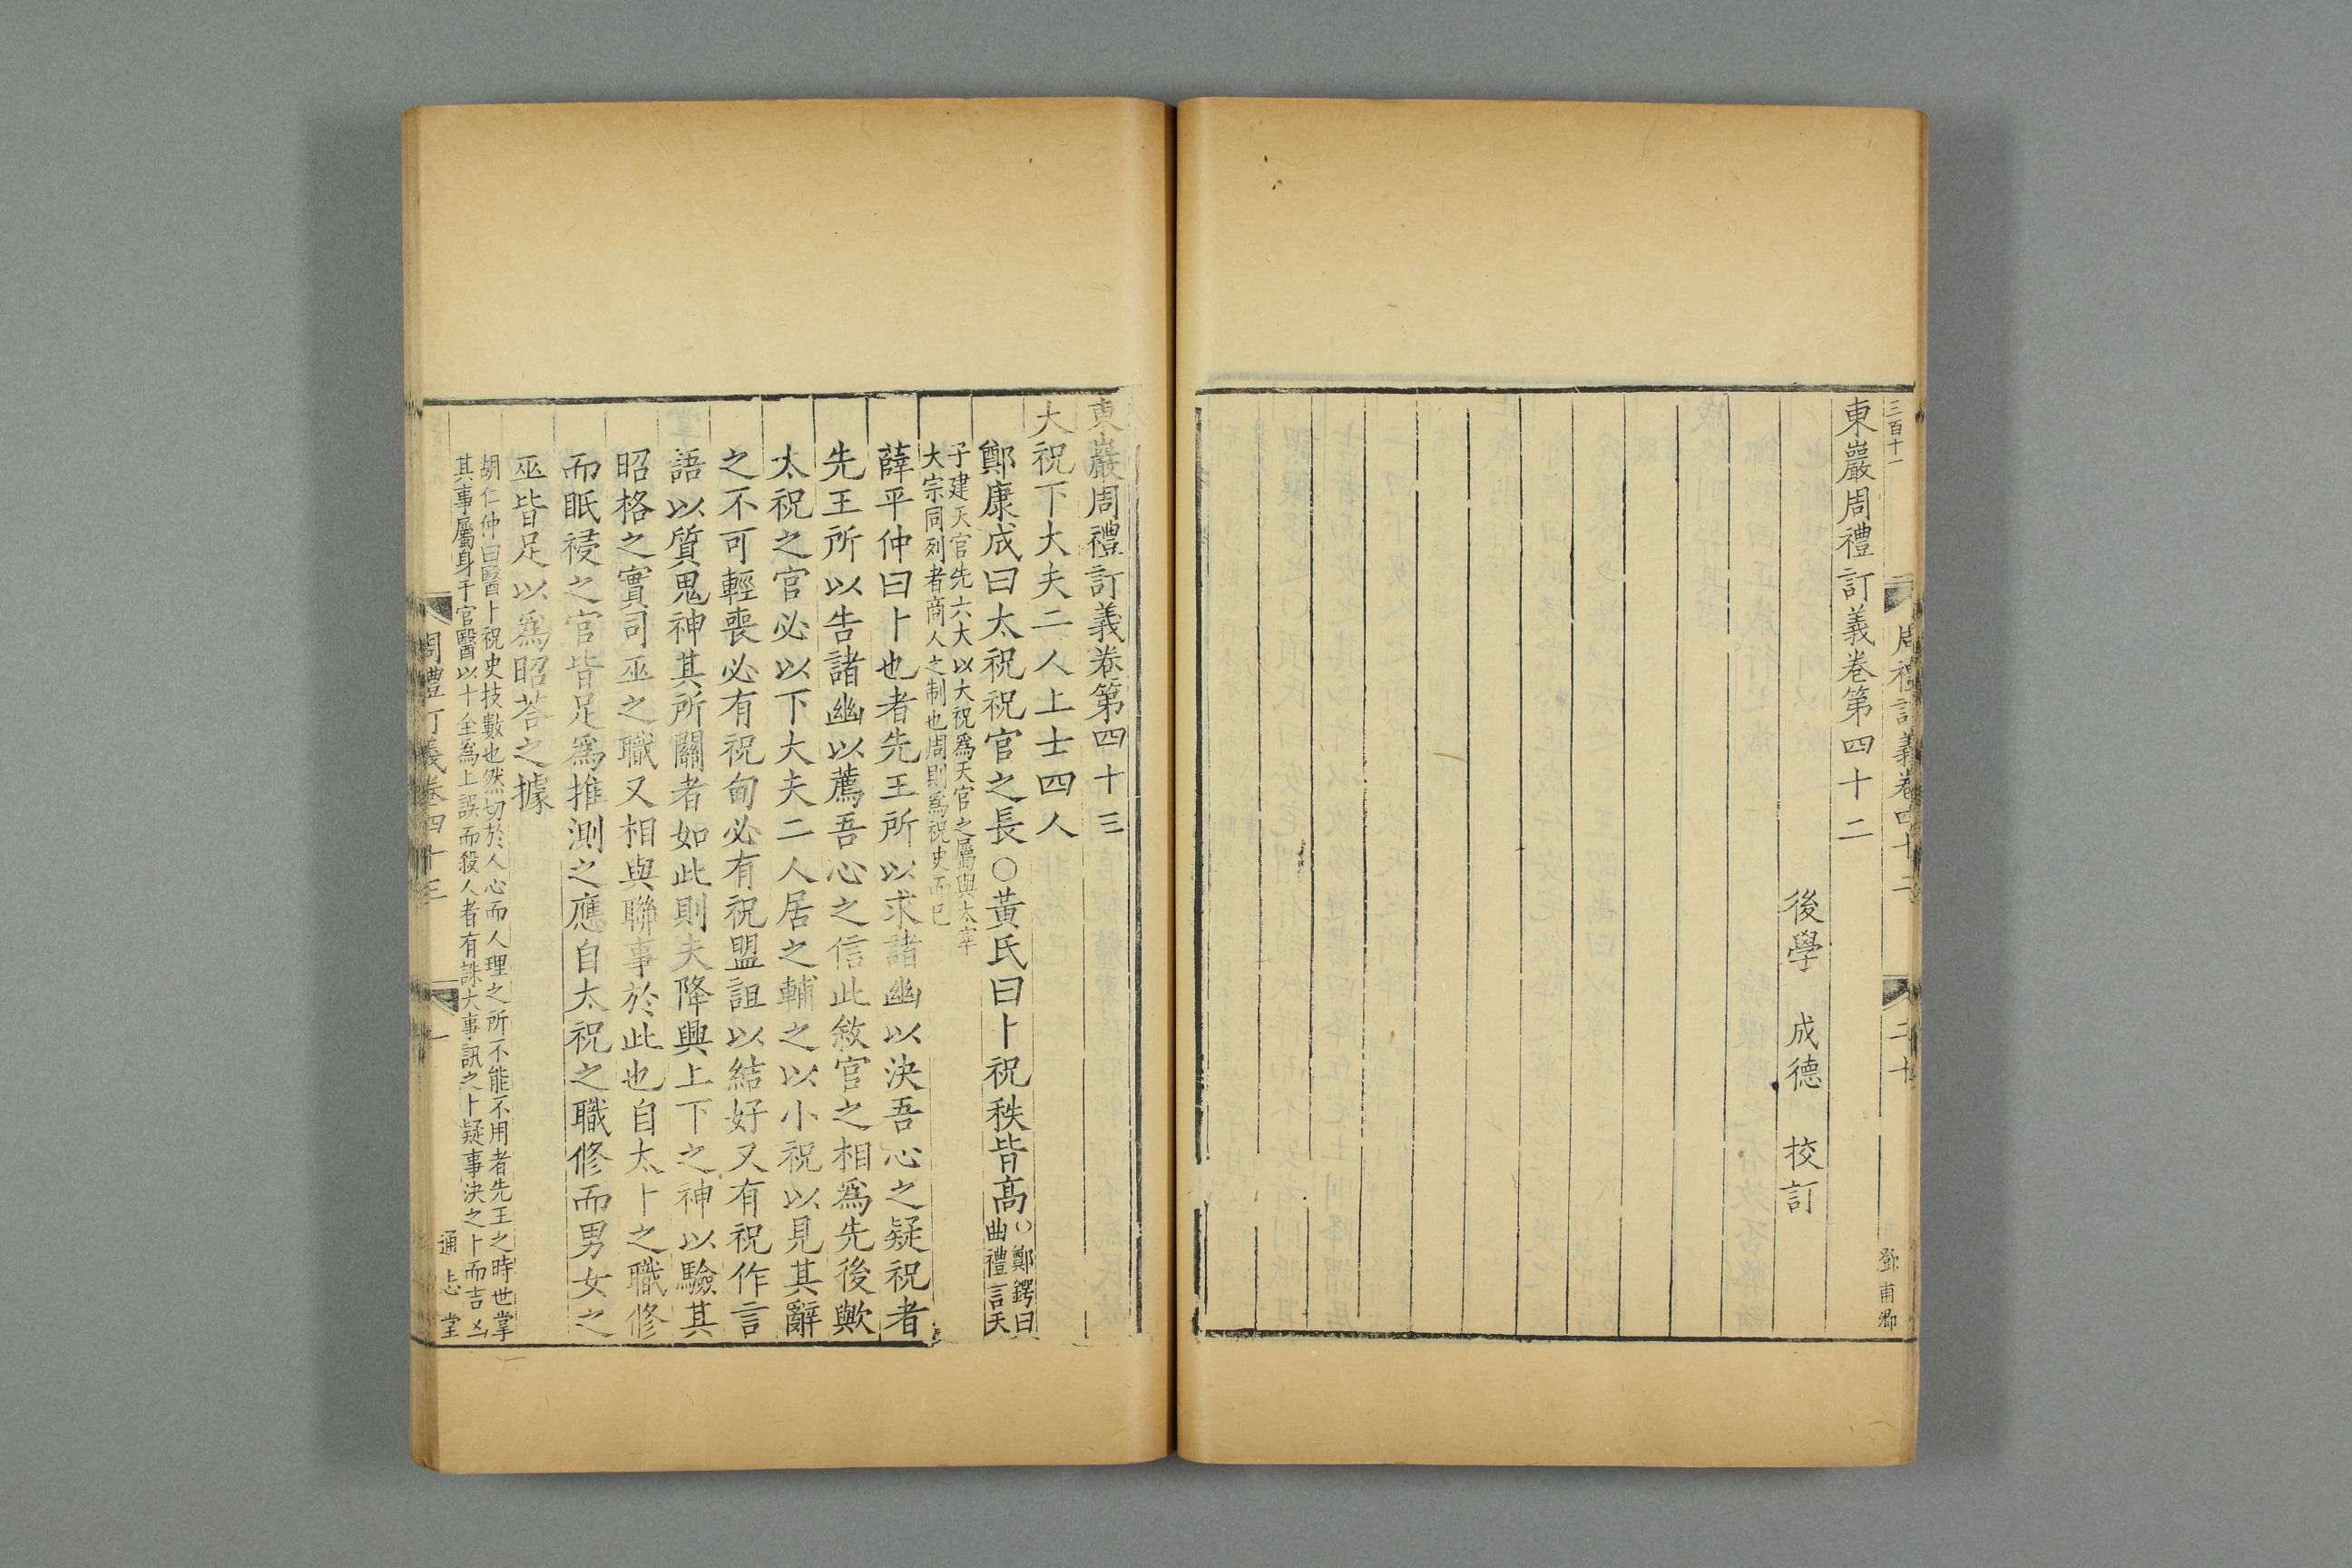 三百十一
周禮訂義卷四十二
二十
鄧甫卿
東巖周禮訂義卷第四十二
後學 成德 校訂
東巖周禮訂義卷第四十三
大祝下大夫二人上士四人
鄭康成曰太祝祝官之長○黃氏曰卜祝秩皆高○鄭鍔曰
曲禮言天
子建天官先六大以大祝爲天官之屬與太宰
大宗同列者商人之制也周則爲祝史而已
薛平仲曰卜也者先王所以求諸幽以決吾心之疑祝者
先王所以告諸幽以薦吾心之信此敘官之相爲先後歟
太祝之官必以下大夫二人居之輔之以小祝以見其辭
之不可輕喪必有祝甸必有祝盟詛以結好又有祝作言
語以質鬼神其所關者如此則夫降興上下之神以驗其
昭格之實司巫之職又相與聯事於此也自太卜之職修
而眂祲之官皆足爲推測之應自太祝之職修而男女之
巫皆足以爲昭荅之據
胡仁仲曰醫卜祝史技數也然切於人心而人理之所不能不用者先王之時世掌
其事屬身于官醫以十全為上誤而殺人者有誅大事訊之卜疑事決之卜而吉凶
周禮訂義卷四十三
一
通志堂